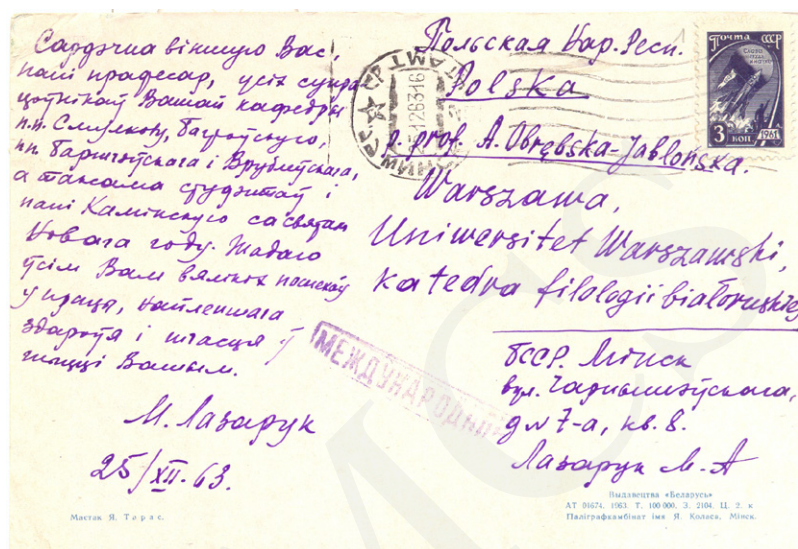 Сардэчна віншую Вас,
пані прафесар, усіх супра
цоўнікаў Вашай кафедры
п.п. Смулкову, Баршчэўскага і Врублеўскага,
а таксама студэнтаў і
пані Камінскую са святам
Новага году. Жадаю
ўсім Вам вялікіх поспехаў
у працы, найлепшага
здароўя і шчасця ў
жыцці Вашым.
М. Лазарук
25/XII. 63.
Мастак Я. Тарас.
Польская Нар. Респ.
Polska
p. prof. A. Obrębska-Jabłońska.
Warszawa,
Uniwersitet Warszawski,
Katedra filologii białoruskiej
БССР. Мінск
вул. Чарнышэўскага,
д. 7-а, кв. 8.
Лазарук М. А
ПОЧТА СССР
3 КОП. 1961
МЕЖДУНАРОДНОЕ
Выдавецтва «Беларусь»
АТ 01674. 1963. Т. 100 000. З. 2104. Ц. 2. к
Паліграфкамбінат імя Я. Коласа, Мінск.